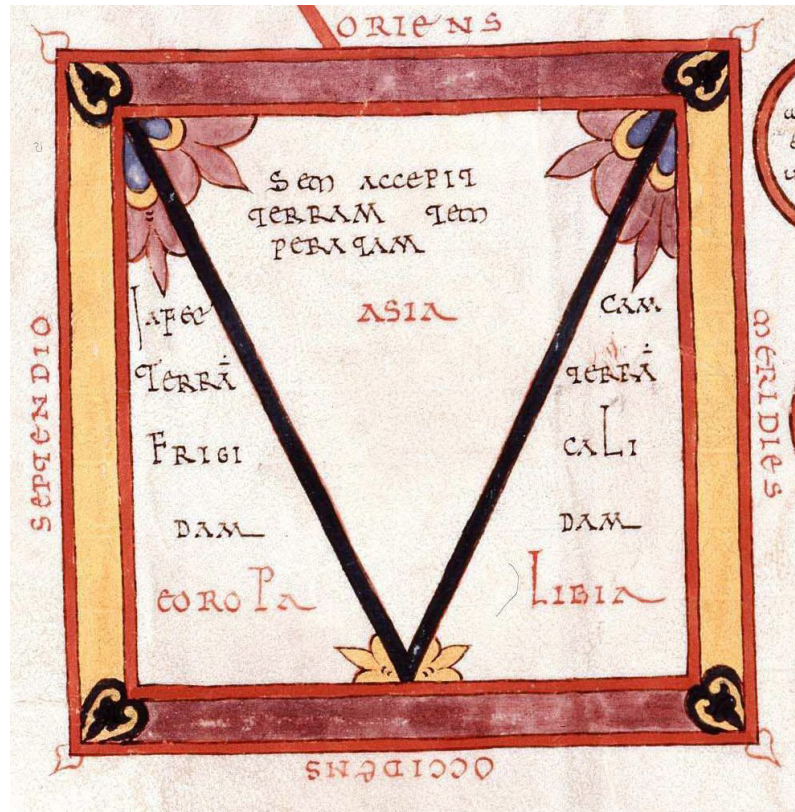 ORIENS
Sem accepit
terram tem
peratam
ASIA
Iafet
Terrā
Frigi
dam
EOROPA
cam
terrā
cali
dam
LIBIA
SEPTENDIO
MERIDIES
OCCIDENS